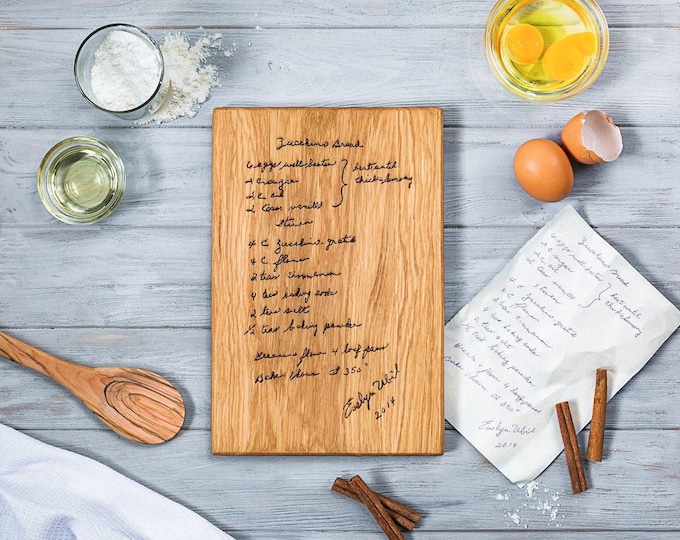 Zucchino Bread
6 eggs well beaten } beat until
2 C sugar thick & foamy
2 C oil
2 teas vanilla
Stir in
4 C Zucchino grated
4 C flour
2 teas cinnamon
4 teas baking soda
2 teas salt
½ teas baking powder
Grease & flour 4 loaf pans
Bake 1 hour at 350°
Evelyn Ubil
2014
Zucchino Bread
6 eggs well beaten } beat until
2 C sugar thick & foamy
2 C oil
2 teas vanilla
4 C Zucchino grated
4 C flour
2 teas cinnamon
4 teas baking soda
2 teas salt
½ teas baking powder
Grease & flour 4 loaf pans
Bake 1 hour at 350°
Evelyn Ubil
2014